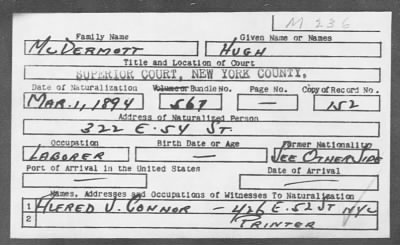 M 236
Family Name Given Name or Names
McDermott Hugh
Title and Location of Court
SUPERIOR COURT, NEW YORK COUNTY,
Date of Naturalization Volume or Bundle No. Page No. Copy of Record No.
Mar. 1, 1894 567 — 152
Address of Naturalized Person
322 E. 54 St.
Occupation Birth Date or Age Former Nationality
Laborer — See Other Side
Port of Arrival in the United States Date of Arrival
— —
Names, Addresses and Occupations of Witnesses To Naturalization
1 Alfred J. Connor — 426 E. 52 St NYC
2 Printer